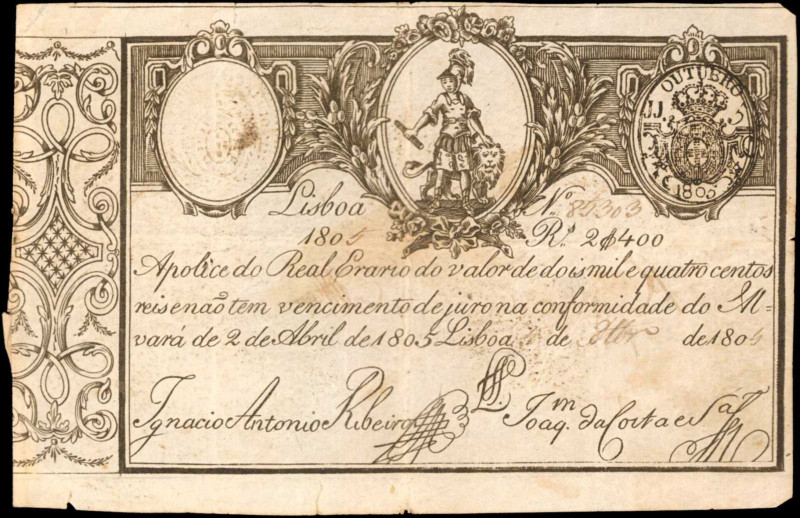 OUTUBRO
JJ
1805
Lisboa Nº 85303
1805 Rˢ 2$400
Apolice do Real Erario do valor de dois mil e quatro centos
reis e não tem vencimento de juro na conformidade do Al-
vará de 2 de Abril de 1805 Lisboa de de 180
Ignacio Antonio Ribeiro Joaqᵐ da Costa e Sá